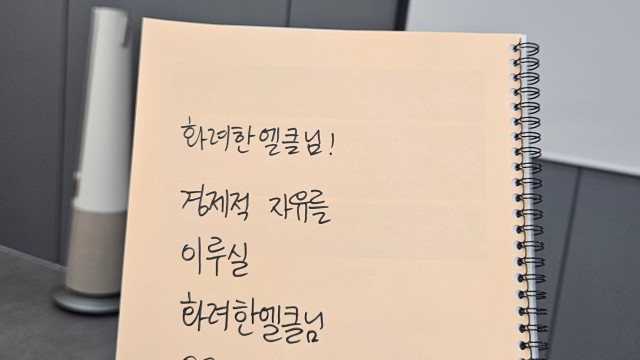 화려한엘클님!
경제적 자유를
이루실
화려한엘클님